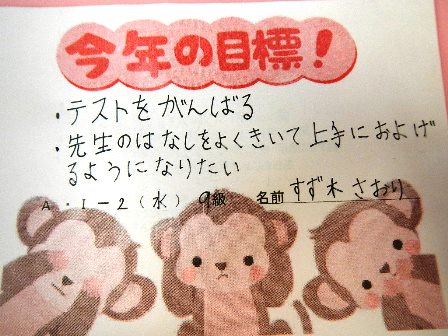 今年の目標!
・テストをがんばる
・先生のはなしをよくきいて上手におよげ
るようになりたい
A. 1-2(水) 9級 名前 すず木 さおり